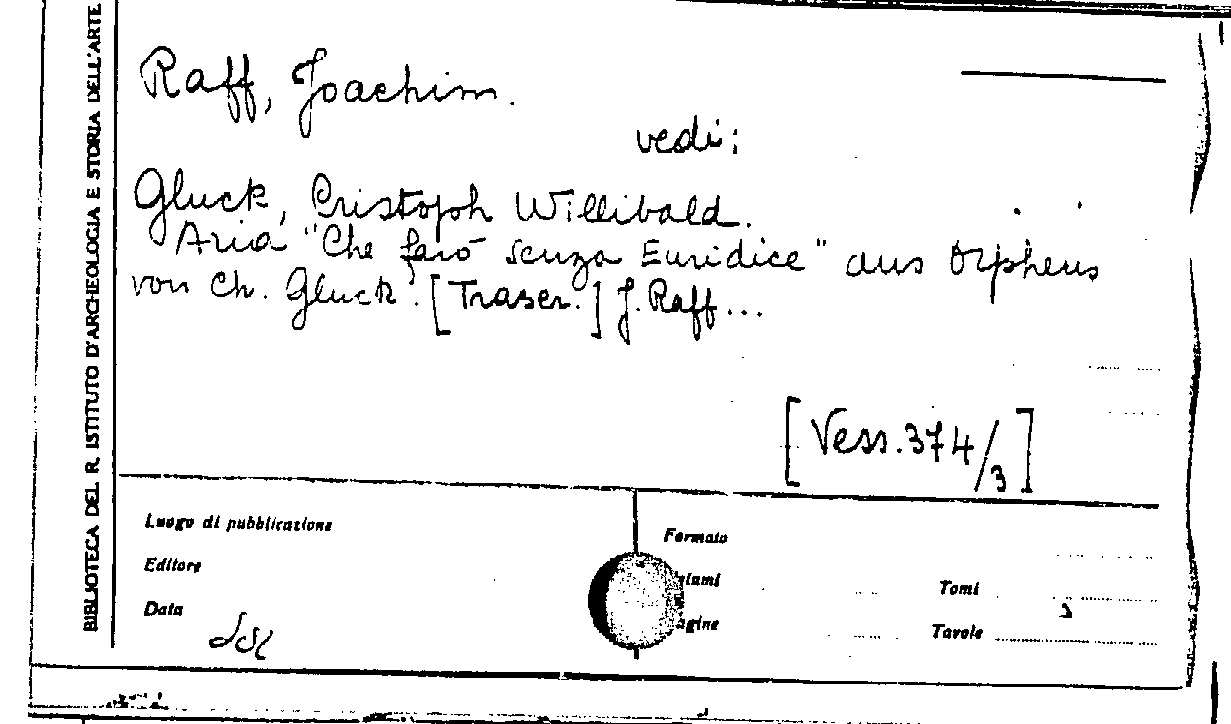 BIBLIOTECA DEL R. ISTITUTO D'ARCHEOLOGIA E STORIA DELL'ARTE
Raff, Joachim.
vedi:
Gluck, Cristoph Willibald.
Aria "Che farò senza Euridice" aus Orpheus
von Ch. Gluck. [Trascr.] J. Raff...
[Vess. 374/3]
Luogo di pubblicazione
Formato
Editore
lumi
Tomi
Data
agine
Tavole